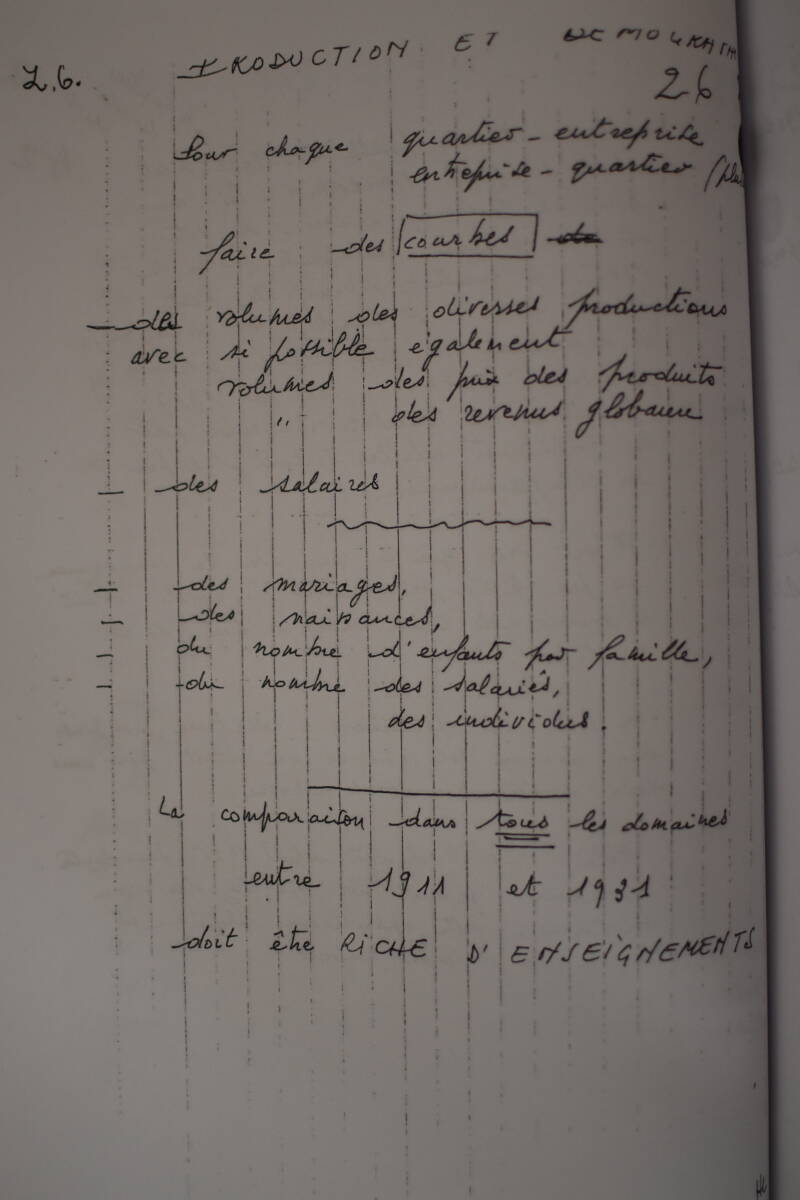 I.6. PRODUCTION ET DEMOGRAPH
26
Pour chaque quartier - entreprise
entreprise - quartier
faire des courbes
— des volumes des diverses productions
avec si possible également
volumes des prix des produits
" des revenus globaux
— des salaires
— des mariages,
— des naissances,
— du nombre d'enfants par famille,
— du nombre des salariés,
des individus.
La comparaison dans tous les domaines
entre 1911 et 1931
doit être RICHE D'ENSEIGNEMENTS